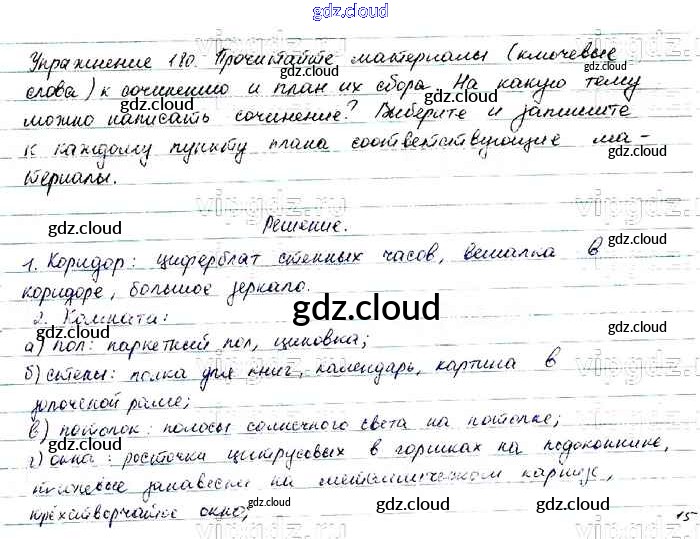 gdz.cloud
Упражнение 180. Прочитайте материалы (ключевые
слова) к сочинению и план их сбора. На какую тему
gdz.cloud gdz.cloud
можно написать сочинение? Выберите и запишите
к каждому пункту плана соответствующие ма-
териалы.
gdz.cloud gdz.cloud
Решение.
1. Коридор: циферблат стенных часов, вешалка в
коридоре, большое зеркало.
gdz.cloud
2. Комнаты:
gdz.cloud gdz.cloud
а) пол: паркетный пол, циновка;
б) стены: полка для книг, календарь, картина в
золоченой раме;
gdz.cloud gdz.cloud
в) потолок: полосы солнечного света на потолке;
г) окна: росточки цитрусовых в горшках на подоконнике,
занавески на металлическом карнизе,
трехстворчатое окно;
gdz.cloud gdz.cloud
15